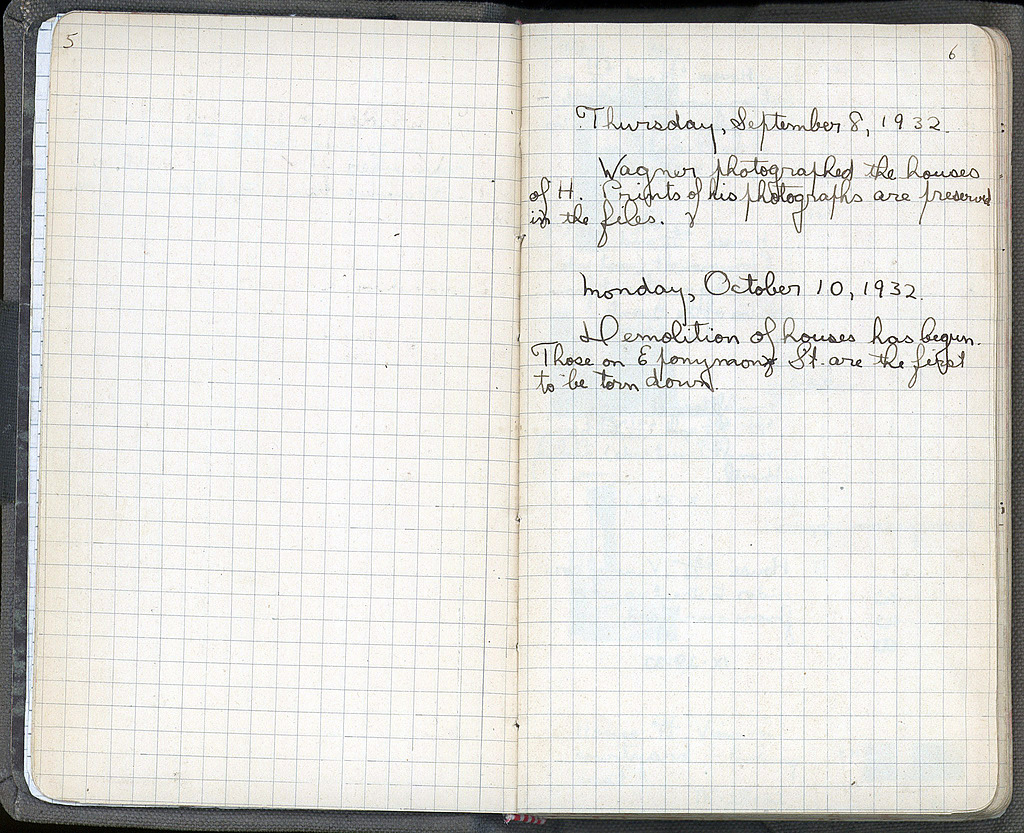 5
6
Thursday, September 8, 1932.
Wagner photographed the houses
of H. Prints of his photographs are preserved
in the files.
Monday, October 10, 1932.
Demolition of houses has begun.
Those on Eponymous St. are the first
to be torn down.